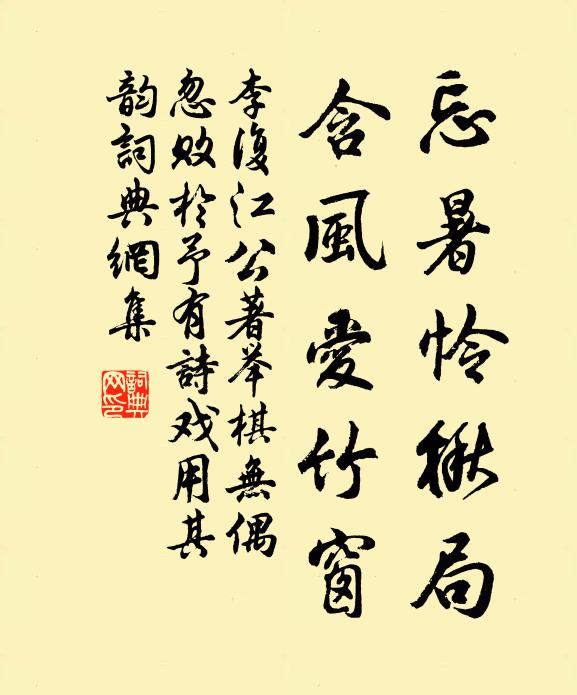 忘暑怜楸局
含風愛竹窗
李復江公著举棋無偶
忽败於予有詩戏用其
韵詞典網集
詞典网印